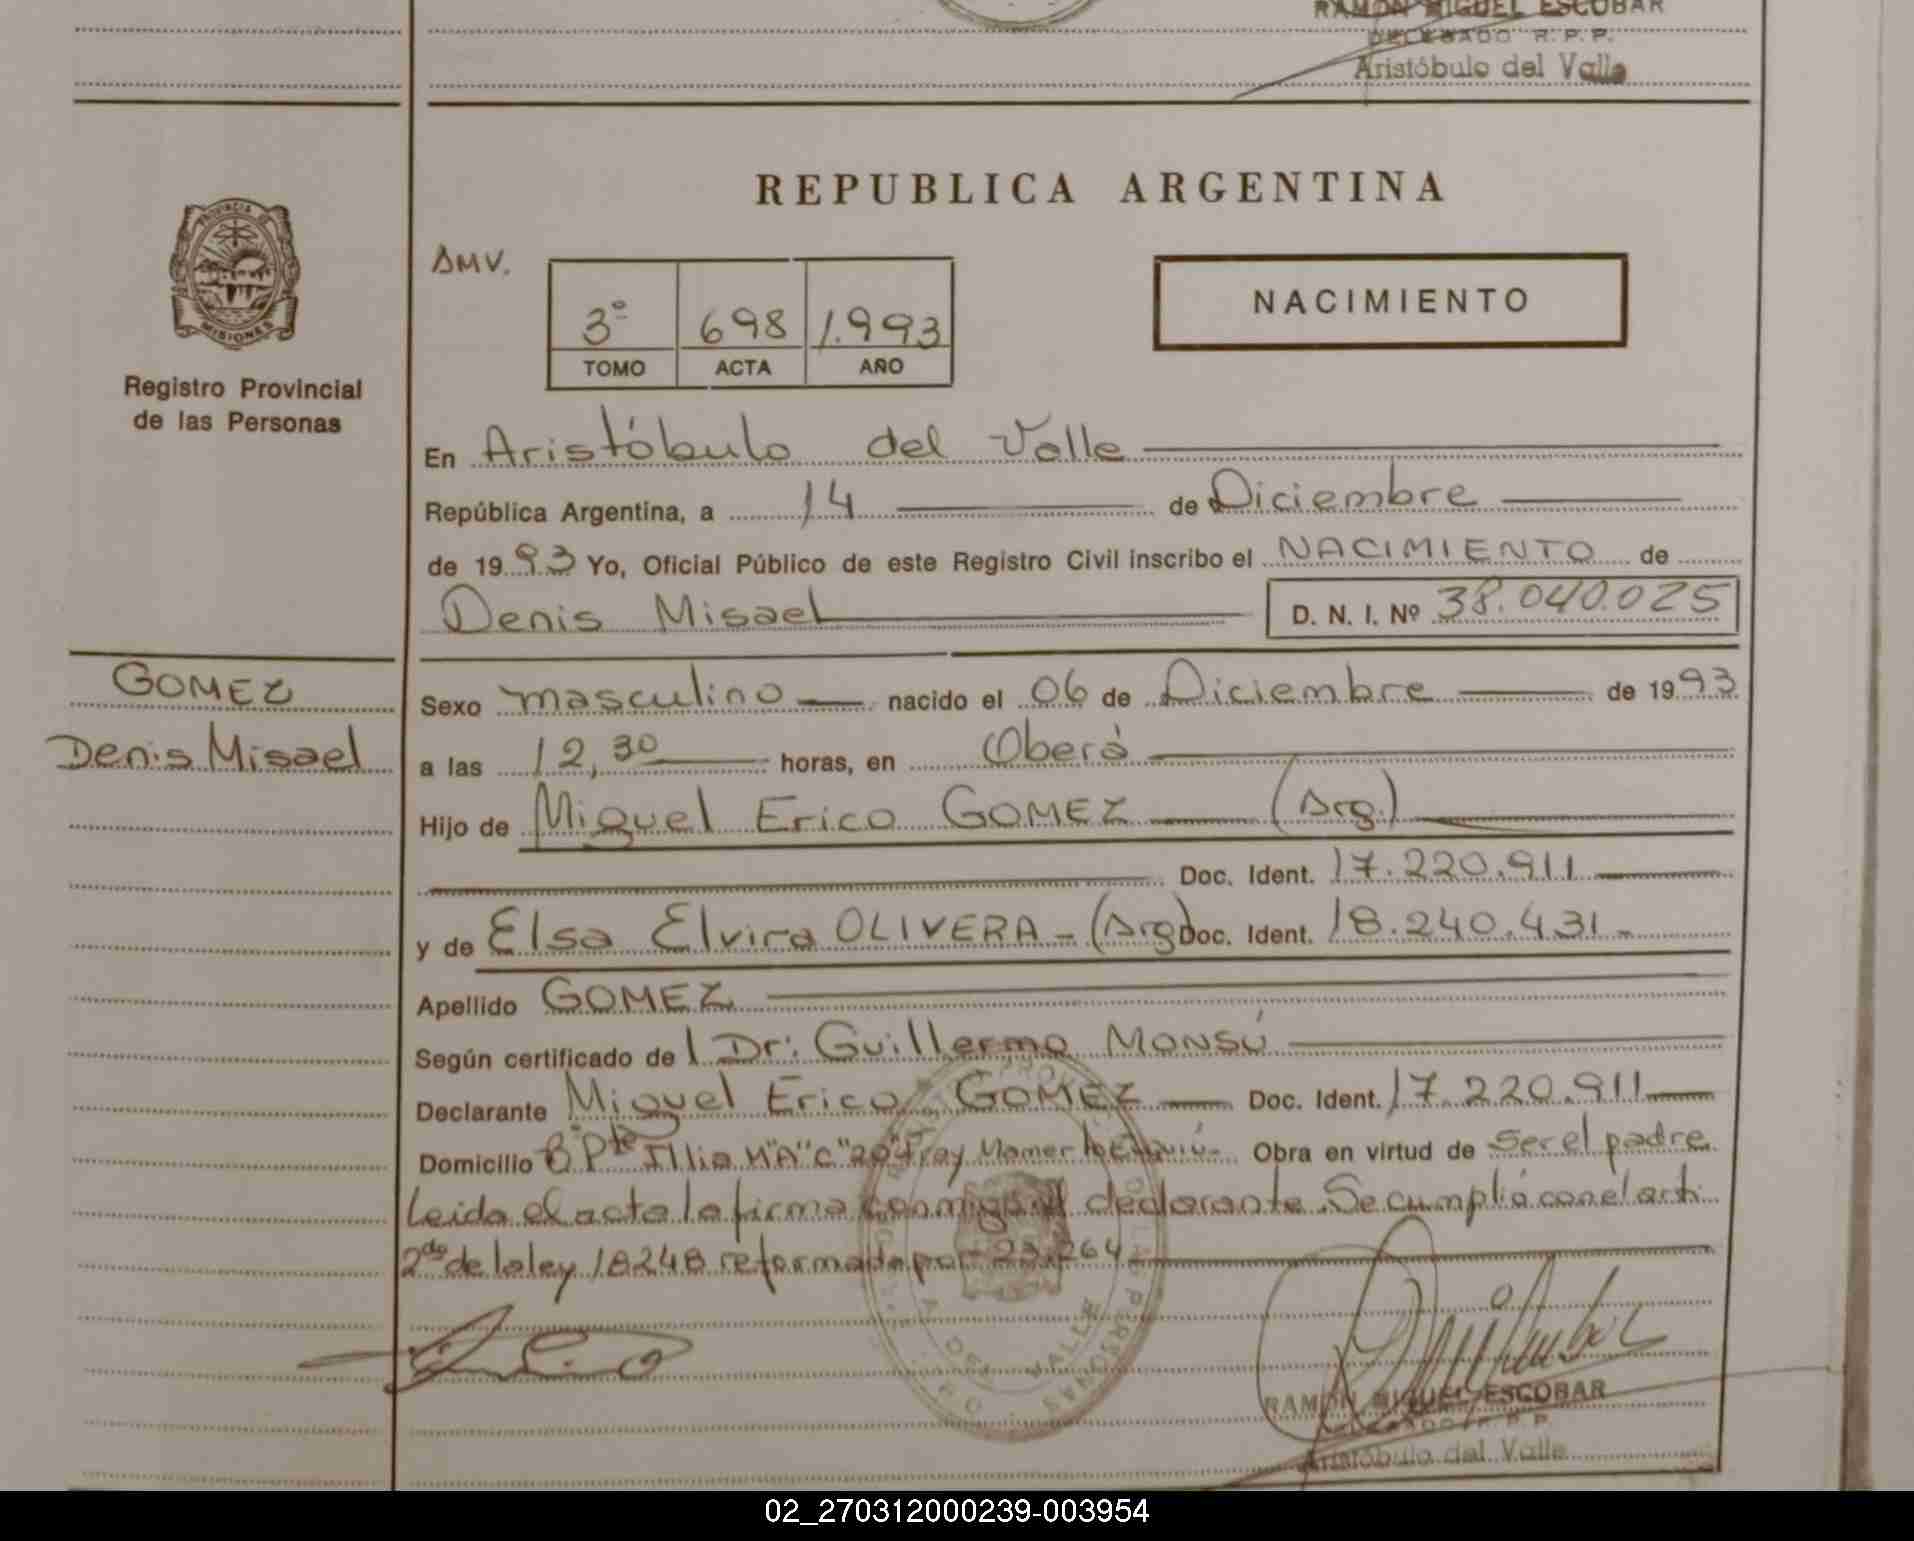 RAMON MIGUEL ESCOBAR
DELEGADO R.P.P.
Aristóbulo del Valle
REPUBLICA ARGENTINA
PROVINCIA DE
MISIONES
Registro Provincial
de las Personas
AMV.
3º 698 1.993
TOMO ACTA AÑO
NACIMIENTO
En Aristóbulo del Valle
República Argentina, a 14 de Diciembre
de 1993 Yo, Oficial Público de este Registro Civil inscribo el NACIMIENTO de
Denis Misael D. N. I. Nº 38.040.025
GOMEZ
Denis Misael
Sexo masculino nacido el 06 de Diciembre de 1993
a las 12,30 horas, en Oberá
Hijo de Miguel Erico GOMEZ (Arg.)
Doc. Ident. 17.220.911
y de Elsa Elvira OLIVERA - (Arg) Doc. Ident. 18.240.431-
Apellido GOMEZ
Según certificado del Dr: Guillermo MONSÚ
Declarante Miguel Erico GOMEZ Doc. Ident. 17.220.911
Domicilio Bº Pte Illia M"A" C"20" Fray Mamerto Esquiú- Obra en virtud de ser el padre
Leida el acta la firma conmigo el declarante. Se cumplió con el arti
2do de la ley 18248 reformada por 23.264-
DEL VALLE
RAMON MIGUEL ESCOBAR
DELEGADO R.P.P.
Aristóbulo del Valle
02_270312000239-003954